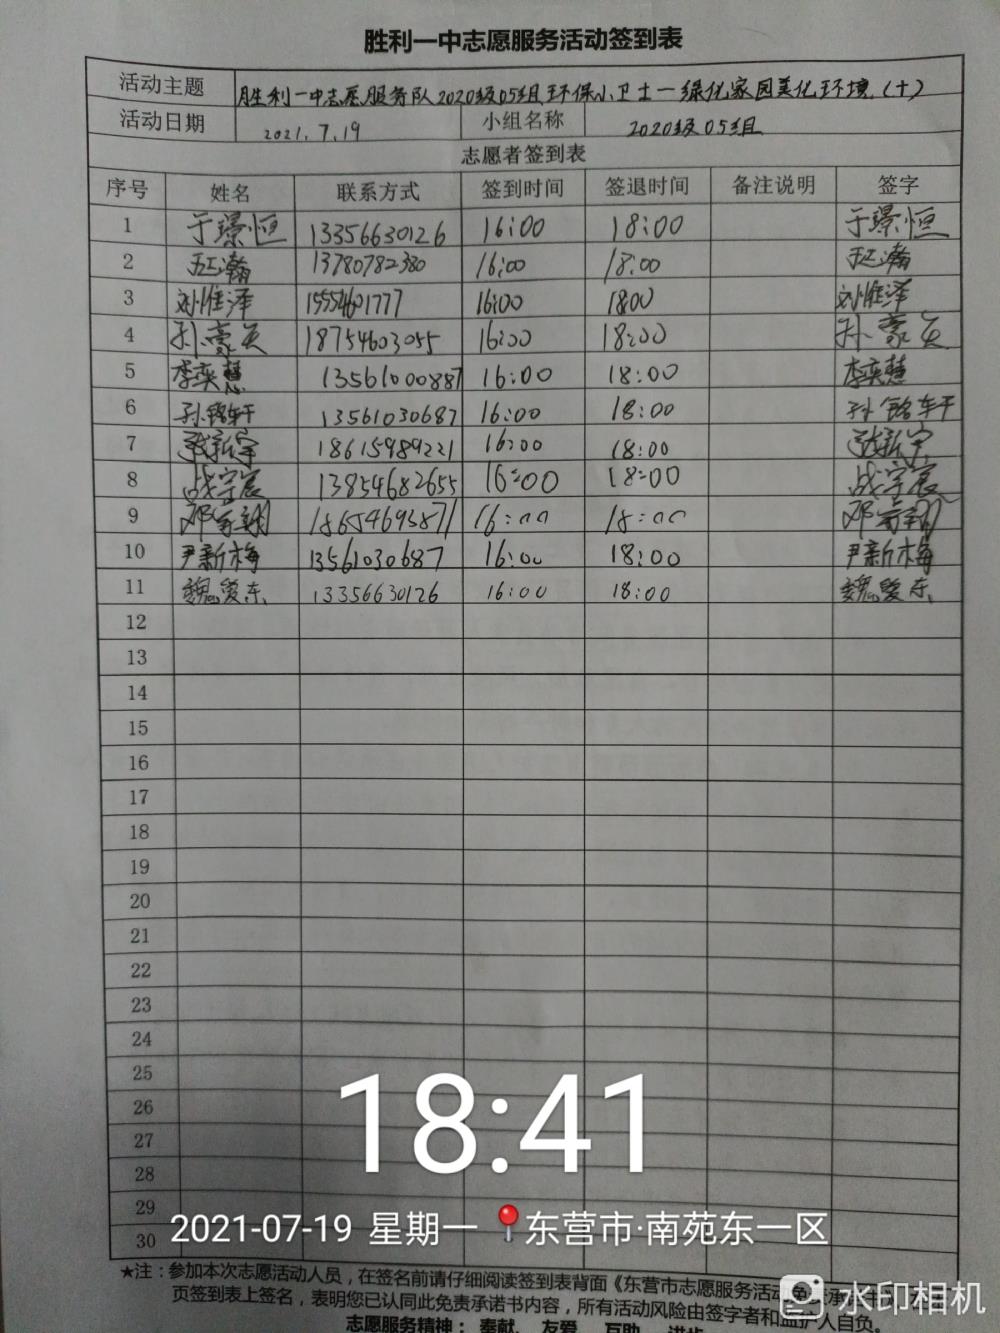 胜利一中志愿服务活动签到表
活动主题 胜利一中志愿服务队2020级05组环保小卫士一绿化家园美化环境(十)
活动日期 2021.7.19 小组名称 2020级05组
志愿者签到表
序号 姓名 联系方式 签到时间 签退时间 备注说明 签字
1 于璟恒 13356630126 16:00 18:00 于璟恒
2 13780782380 16:00 18:00
3 刘惟泽 15554601777 16:00 18:00 刘惟泽
4 孙豪 18754603055 16:00 18:00 孙豪
5 李奕慧 13561000887 16:00 18:00 李奕慧
6 孙铭轩 13561030687 16:00 18:00 孙铭轩
7 张新宇 18615989221 16:00 18:00 张新宇
8 战宇宸 13854682655 16:00 18:00 战宇宸
9 邓 翔 18654693871 16:00 18:00 邓 翔
10 尹新梅 13561030687 16:00 18:00 尹新梅
11 魏爱东 13356630126 16:00 18:00 魏爱东
12
13
14
15
16
17
18
19
20
21
22
23
24
25
26
27
28
29
30
18:41
2021-07-19 星期一 东营市·南苑东一区
★注:参加本次志愿活动人员,在签名前请仔细阅读签到表背面《东营市志愿服务活动
页签到表上签名,表明您已认同此免责承诺书内容,所有活动风险由签字者和监护人自负。
志愿服务精神:奉献、友爱、互助、进步
水印相机